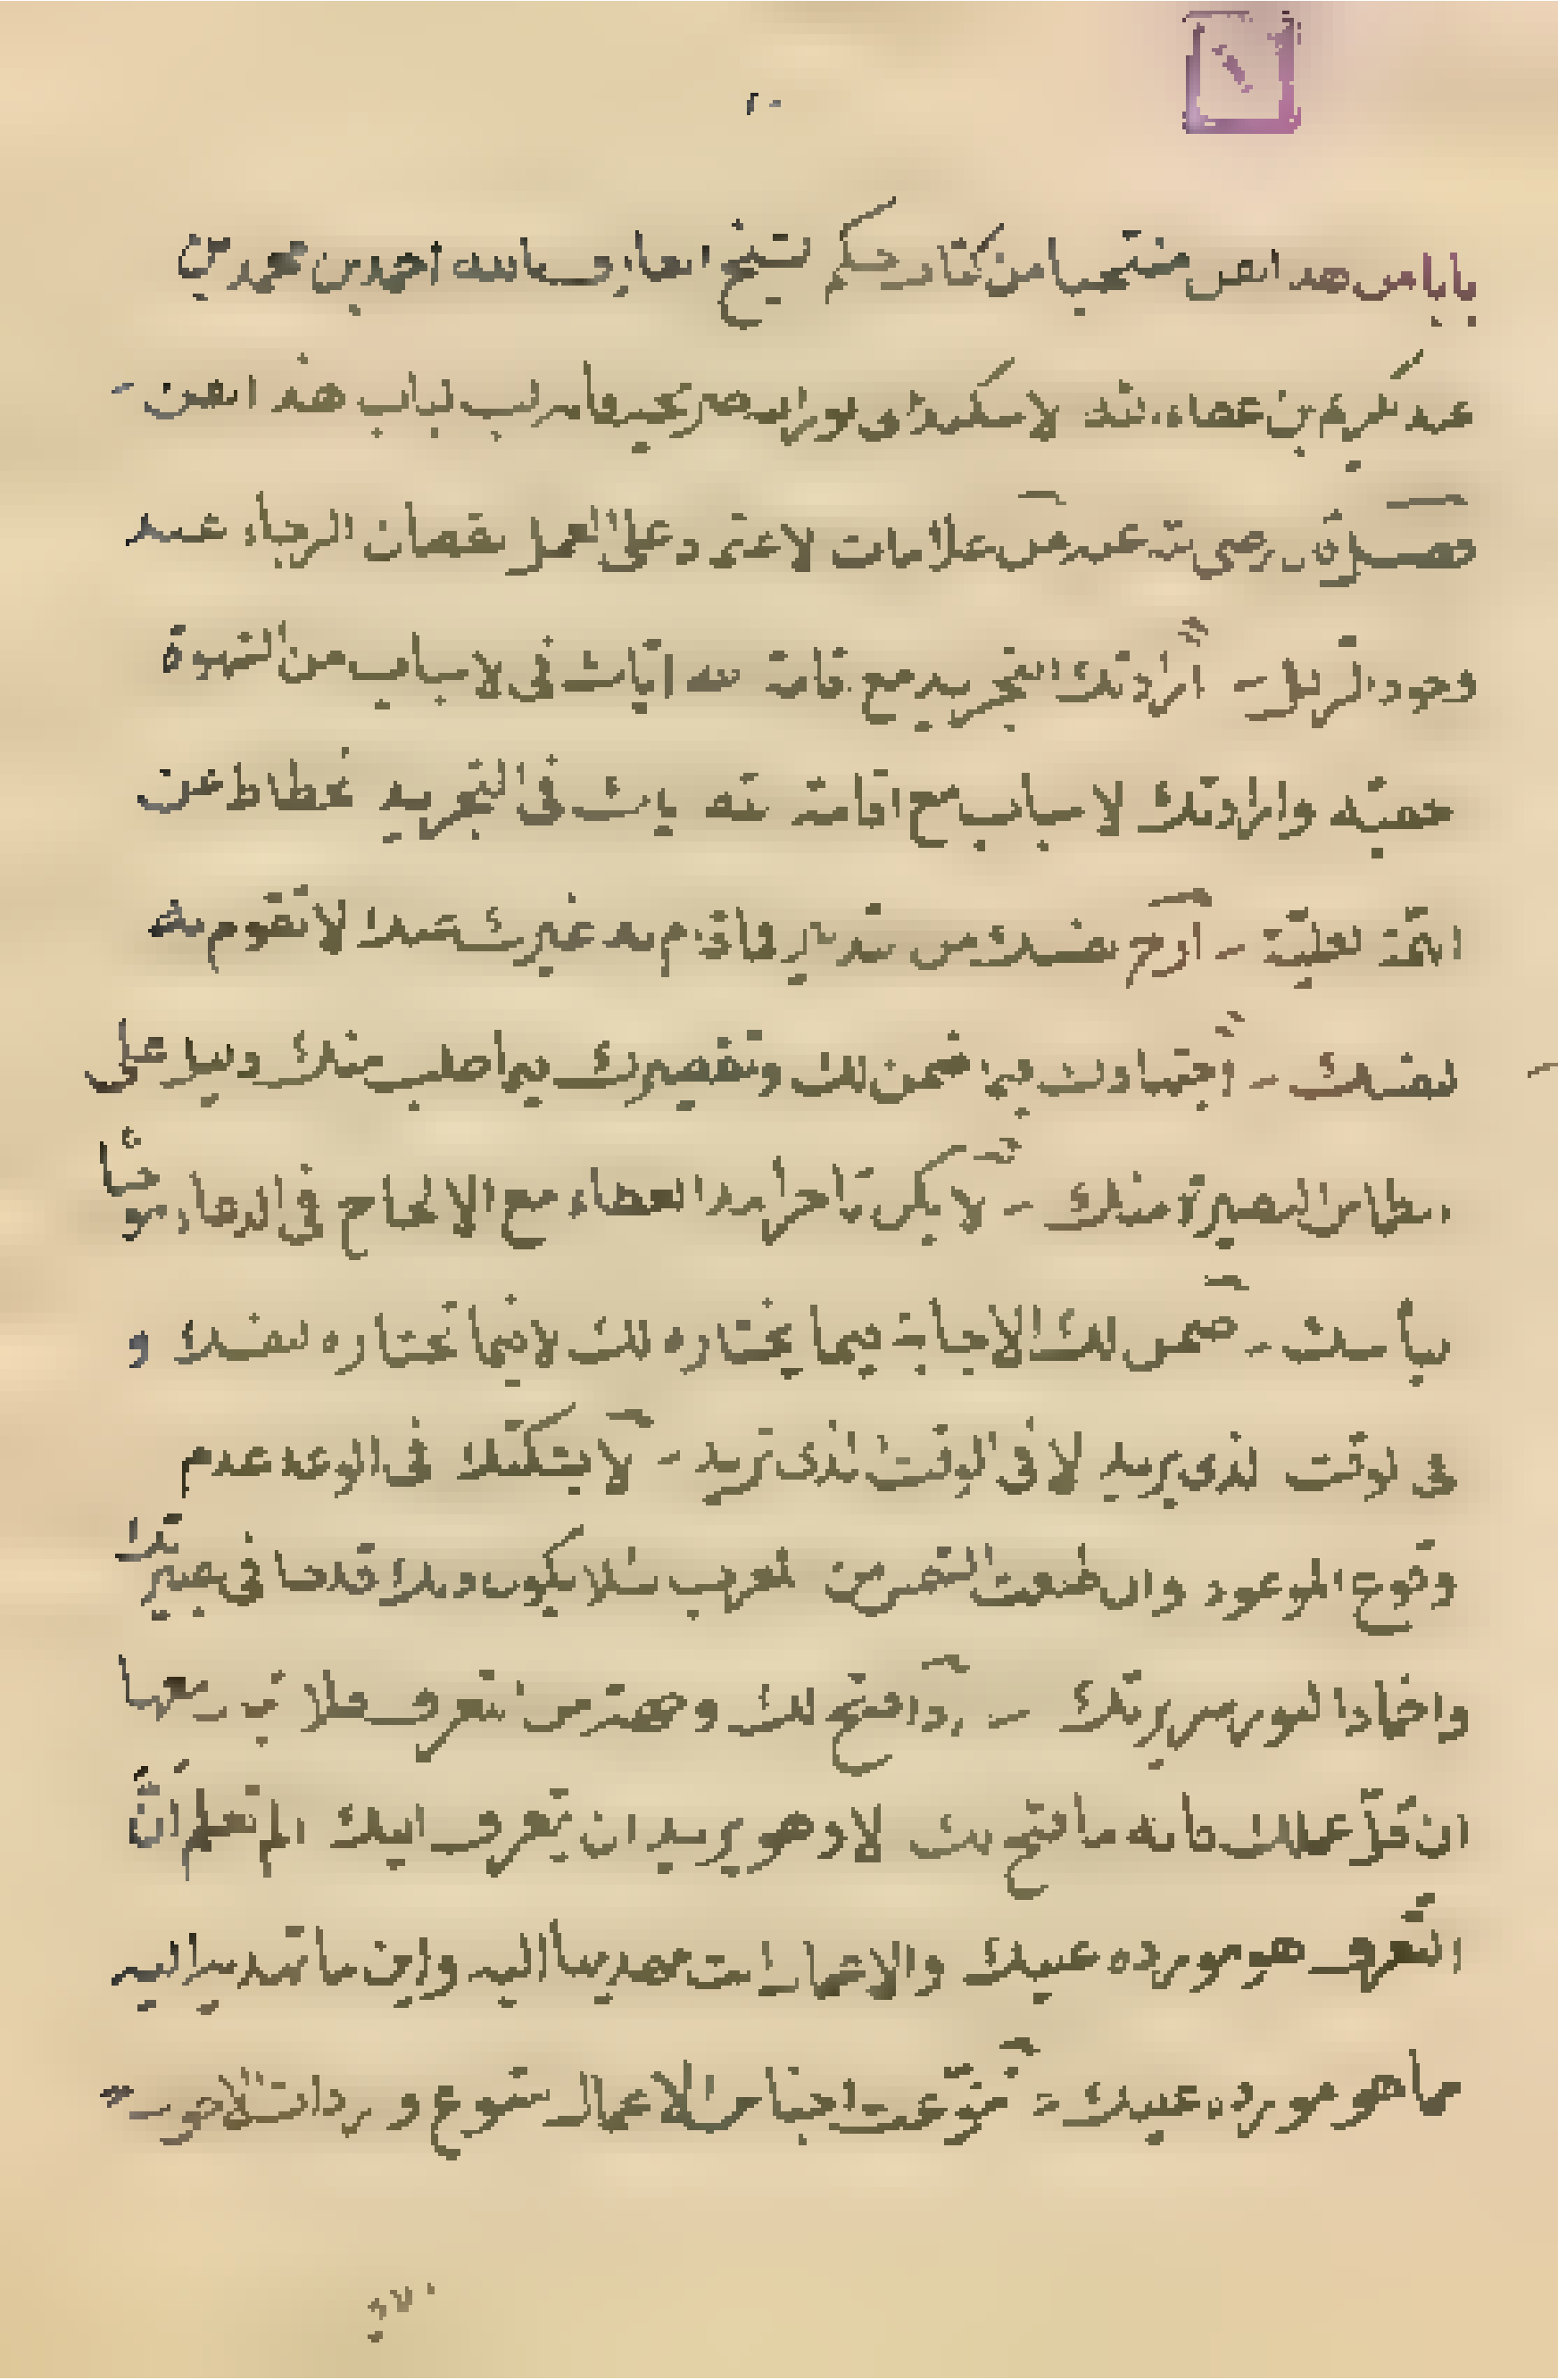 ٢٠
بابا من هذا الفن منتخبا من كتاب حكم الشيخ العارف بالله احمد بن محمد بن
عبد الكريم بن عطاء الله الاسكندرى نور الله ضريحه فانه لب لباب هذا الفن
فصل قال رضى الله عنه من علامات الاعتماد على العمل نقصان الرجاء عند
وجود الزلل ـ ارادتك التجريد مع اقامة الله اياك فى الاسباب من الشهوة
الخفيّة وارادتك الاسباب مع اقامة الله اياك فى التجريد انحطاط عن
الهمّة العليّة ـ ارح نفسك من التدبير فما قام به غيرك عنك لا تقوم به
لنفسك ـ اجتهادك فيما ضمن لك وتقصيرك فيما طلب منك دليل على
انطماس البصيرة منك ـ لا يكن تاخر امد العطاء مع الالحاح فى الدعاء موجبا
ليأسك ـ ضمن لك الاجابة فيما يختاره لك لا فيما تختاره لنفسك و
فى الوقت الذى يريد لا فى الوقت الذى تريد ـ لا يشككنك فى الوعد عدم
وقوع الموعود وان طلعت الشمس من المغرب لئلا يكون ذلك قدحا فى بصيرتك
واخمادا لنور سريرتك ـ اذا فتح لك وجهة من التعرف فلا تبال معها
ان قلّ عملك فانه ما فتح لك الا وهو يريد ان يتعرف اليك الم تعلم انّ
التعرف هو مورده عليك والاعمال انت مهديها اليه واين ما تهديه اليه
مما هو مورده عليك ـ تنوّعت اجناس الاعمال لتنوع واردات الاحوال